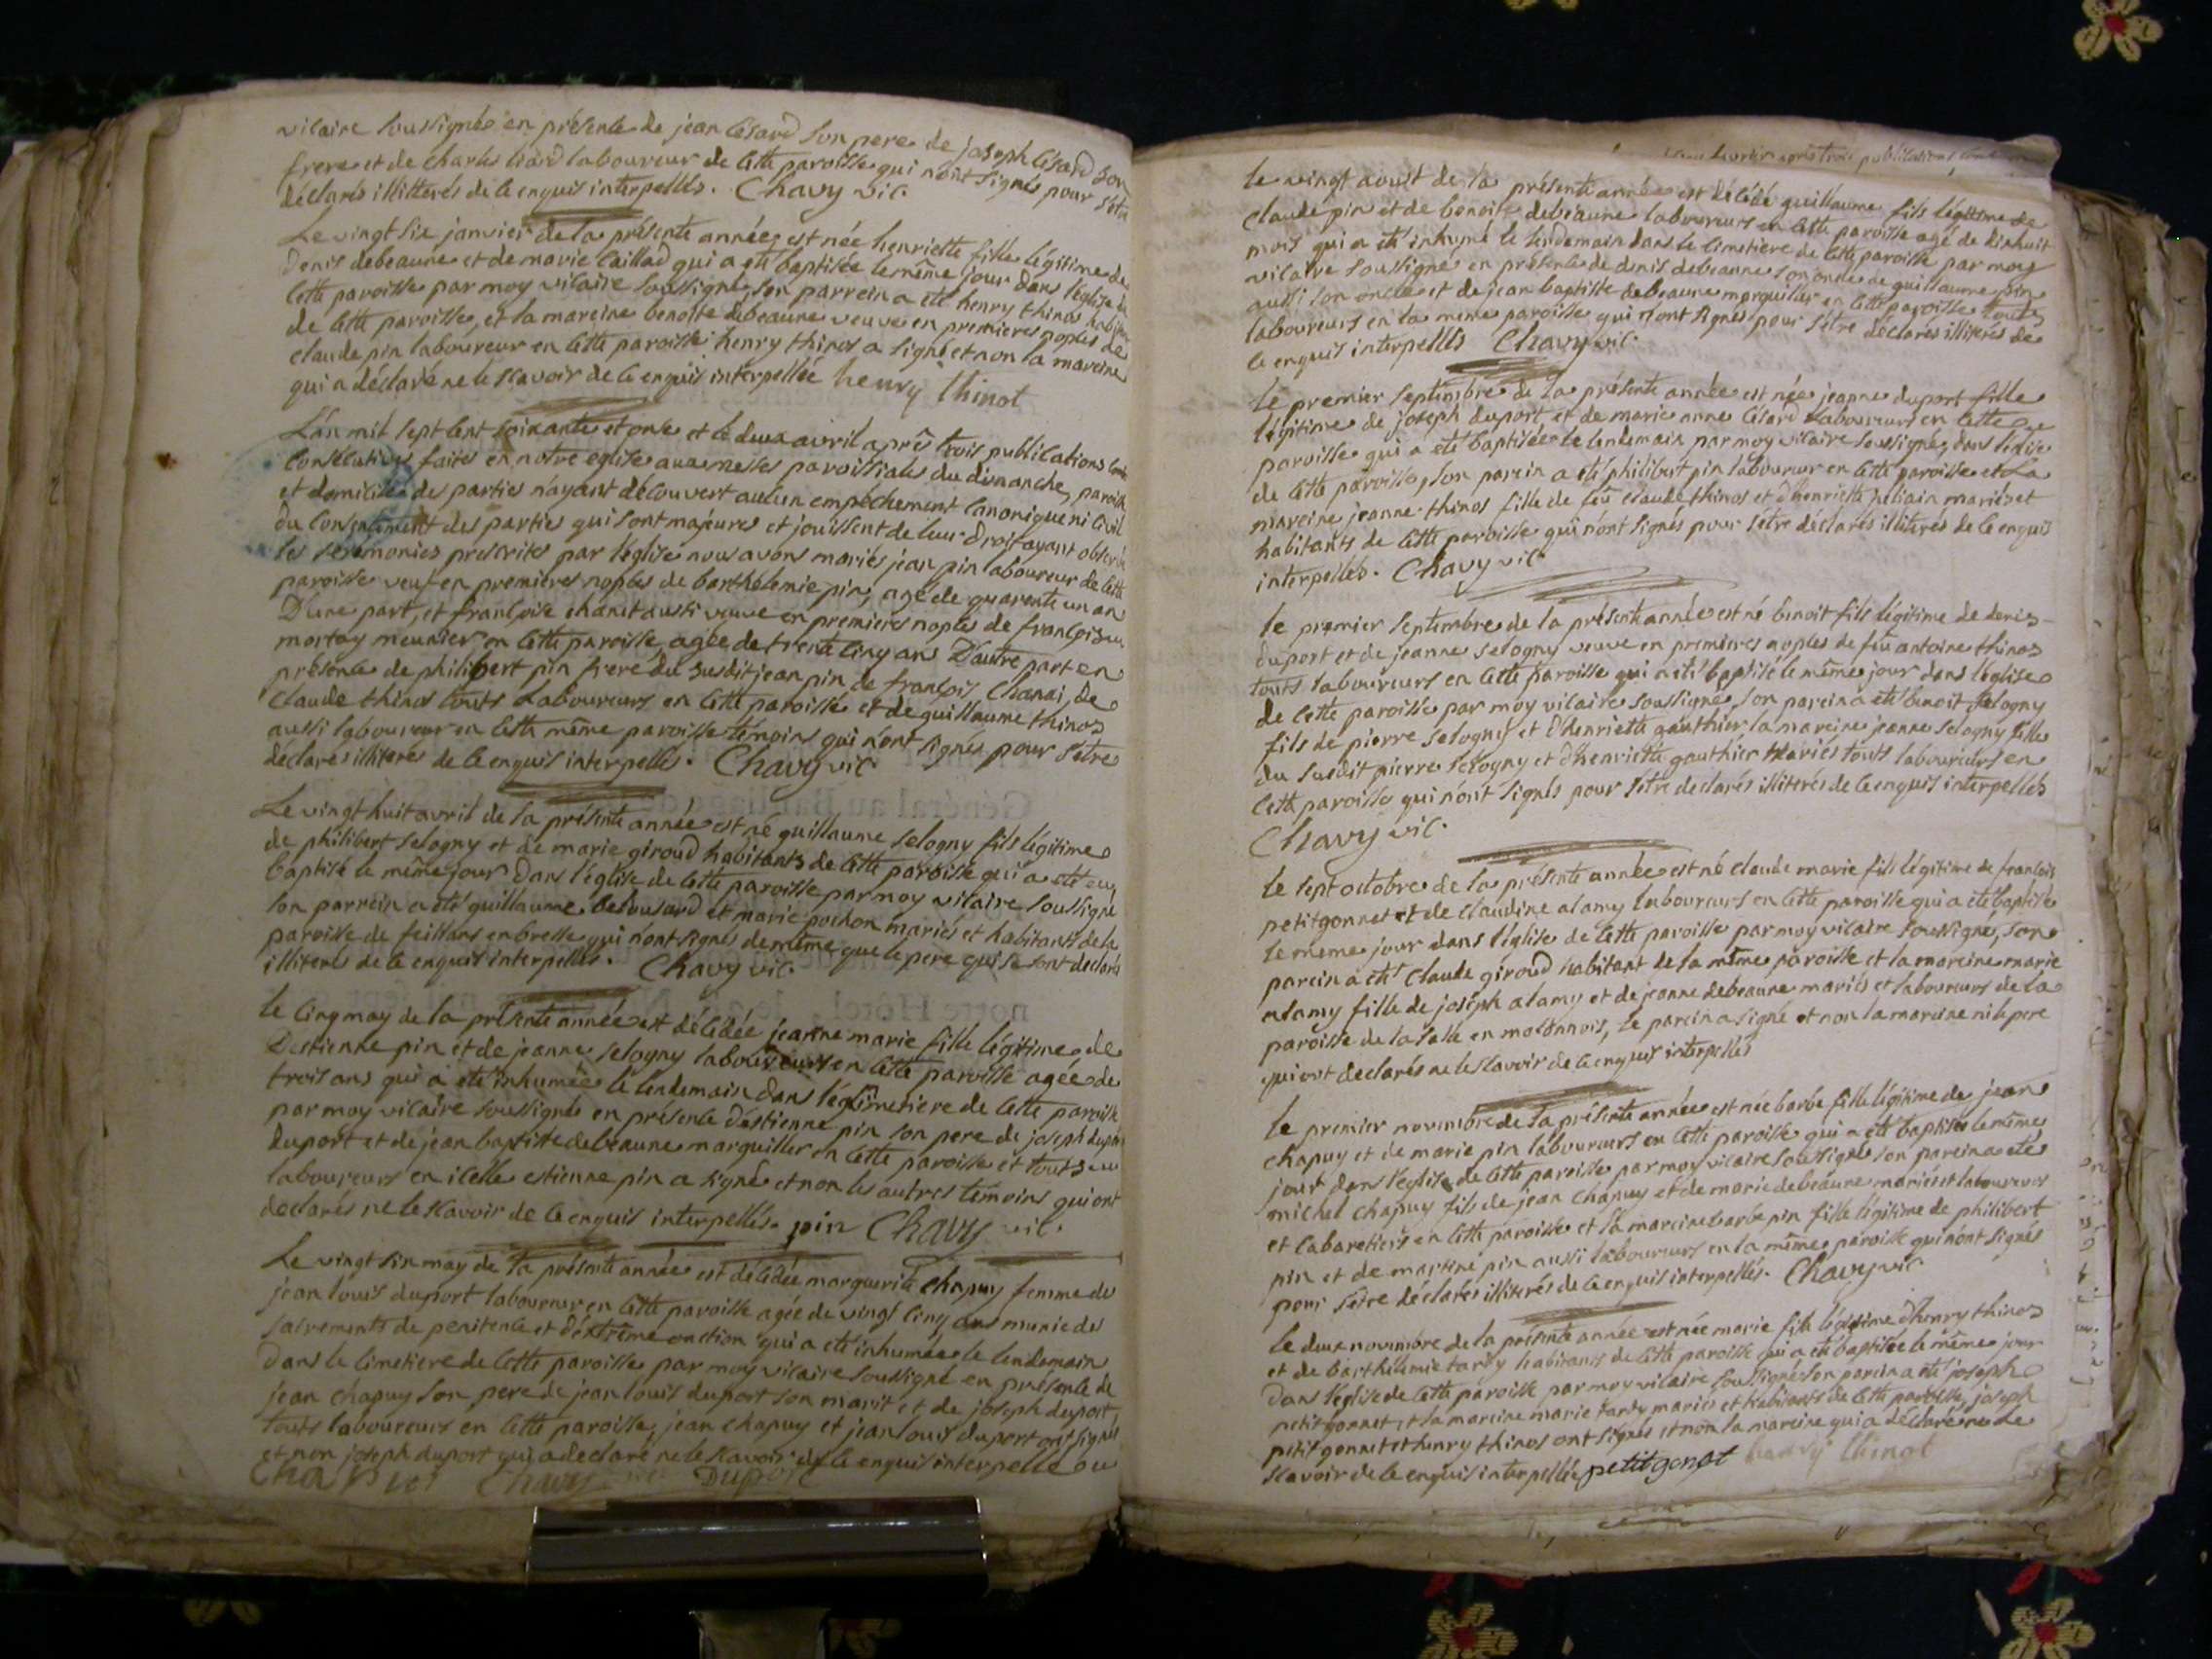 vicaire soussigné en présence de jean Césard son pere de joseph Césard son
frere et de charles liard laboureur de cette paroisse qui n'ont signés pour s'etre
déclarés illitterés de ce enquis interpellés. Chavy vic.
Le vingt six janvier de la présente année, est née henriette fille légitime de
Denis debeaune et de marie Caillad qui a été baptisée le même jour dans l'église de
cette paroisse par moy vicaire soussigné, son parrein a été henry thinos
de cette paroisse, et la mareine benoite debeaune veuve en premieres noples de
claude pin laboureur en cette paroisse henry thinos a signé et non la mareine
qui a déclaré ne le scavoir de ce enquis interpellée henry thinot
L'an mil sept cent soixante et onze et le deux avril après trois publications
consecutives faites en notre eglise aux messes paroissiales du dimanche, paroisse
et domicile de parties n'ayant découvert aucun empechement canonique ni civil
du consentement des parties qui sont majeures et jouissent de leur droit ayant observé
les seremonies prescrites par l'église nous avons mariés jean pin laboureur de cette
paroisse veuf en premières noples de barthelemie pin, agé de quarente un an
D'une part, et françoise chanet aussi veuve en premieres noples de françois
mortay meunier en cette paroisse, agée de trente cinq ans D'autre part en
présence de philibert pin frere du susdit jean pin de françois Chanai, de
Claude thinos touts Laboureurs en cette paroisse et de guillaume thinos
aussi laboureur en cette même paroisse témoins qui n'ont signés pour s'etre
déclarés illiterés de ce enquis interpellés. Chavy vic.
Le vingt huit avril de la présente année est né guillaume selogny fils légitime
de philibert selogny et de marie giroud habitants de cette paroisse qui a été
baptisé le même jour Dans l'église de cette paroisse par moy vicaire soussigné
son parrein a été guillaume et marie pochon mariés et habitants de la
paroisse de feillans en bresse qui n'ont signés de même que le pere qui se sont declarés
illiterés de ce enquis interpellés. Chavy vic.
le cinq may de la présente année est décédée jeanne marie fille légitime de
Destienne pin et de jeanne selogny laboureurs en cette paroisse agée de
trois ans qui a été inhumée le lendemain dans le cimetiere de cette paroisse
par moy vicaire soussigné en présence d'estienne pin son pere de joseph duport
duport et de jean baptiste debeaune marguiller en cette paroisse et touts
laboureurs en icelle estienne pin a signé et non les autres temoins qui ont
declarés ne le scavoir de ce enquis interpellés. pin Chavy vic.
Le vingt six may de la présente année est décédée marguerite chapuy femme de
jean louis duport laboureur en cette paroisse agée de vingt cinq ans munie des
sacrements de penitence et d'extrême onction qui a été inhumée le lendemain
Dans le cimetiere de cette paroisse par moy vicaire soussigné en présence de
jean chapuy son pere de jean louis duport son marit et de joseph duport,
touts laboureurs en cette paroisse, jean chapuy et jean louis duport ont signés
et non joseph duport qui a declaré ne le scavoir de ce enquis interpellé
Chapuy Chavy Duport
apres trois publications
le vingt aoust de la présente année est décédé guillaume fils légitime de
Claude pin et de benoite debeaune laboureurs en cette paroisse agé de dixhuit
mois qui a été inhumé le lendemain dans le cimetiere de cette paroisse par moy
vicaire soussigné en présence de denis debeaune son oncle de guillaume pin
aussi son oncle et de jean baptiste debeaune marguiller en cette paroisse touts
laboureurs en la meme paroisse qui n'ont signés pour s'etre déclarés illiterés de
ce enquis interpellés Chavy vic.
Le premier septembre de la présente année est née jeanne duport fille
légitime de joseph duport et de marie anne Césard Laboureurs en cette
paroisse qui a été baptisée le lendemain par moy vicaire soussigné, dans l'eglise
de cette paroisse, son parein a été philibert pin laboureur en cette paroisse et La
mareine jeanne thinos fille de feu claude thinos et d'henriette mariés et
habitants de cette paroisse qui n'ont signés pour s'etre déclarés illiterés de ce enquis
interpellés. Chavy vic.
le premier septembre de la présente année est né benoit fils légitime de denis
duport et de jeanne selogny veuve en premieres noples de feu antoine thinos
touts laboureurs en cette paroisse qui a été baptisé le même jour dans l'église
de cette paroisse par moy vicaire soussigné, son parein a été benoit selogny
fils de pierre selogny et d'henriette gauthier la mareine jeanne selogny fille
du susdit pierre selogny et d'henriette gauthier Mariés touts laboureurs en
cette paroisse qui n'ont signés pour s'etre declarés illiterés de ce enquis interpellés
Chavy vic.
Le sept octobre de la présente année est né claude marie fils légitime de françois
petitgonnet et de claudine alamy laboureurs en cette paroisse qui a été baptisé
le meme jour dans l'église de cette paroisse par moy vicaire soussigné, son
parein a été Claude giroud habitant de la même paroisse et la mareine marie
alamy fille de joseph alamy et de jeanne debeaune mariés et laboureurs de la
paroisse de la Salle en maconnois, le parein a signé et non la mareine ni le pere
qui ont declarés ne le scavoir de ce enquis interpellés
Le premier novembre de la présente année est née barbe fille légitime de jean
chapuy et de marie pin laboureurs en cette paroisse qui a été baptisée le même
jour dans l'église de cette paroisse par moy vicaire soussigné son parein a été
michel chapuy fils de jean chapuy et de marie debeaune mariés et laboureurs
et cabaretiers en cette paroisse et la mareine barbe pin fille légitime de philibert
pin et de martine pin aussi laboureurs en la même paroisse qui n'ont signés
pour s'etre déclarés illiterés de ce enquis interpellés. Chavy vic
le deux novembre de la présente année est née marie fille légitime d'henry thinos
et de barthelemie tardy habitants de cette paroisse qui a été baptisée le même jour
Dans l'église de cette paroisse par moy vicaire soussigné son parein a été joseph
petitgonnet et la mareine marie tardy mariés et habitants de cette paroisse, joseph
petit gonnet et henry thinos ont signés et non la mareine qui a déclaré ne le
scavoir de ce enquis interpellée petitgonot henry thinot